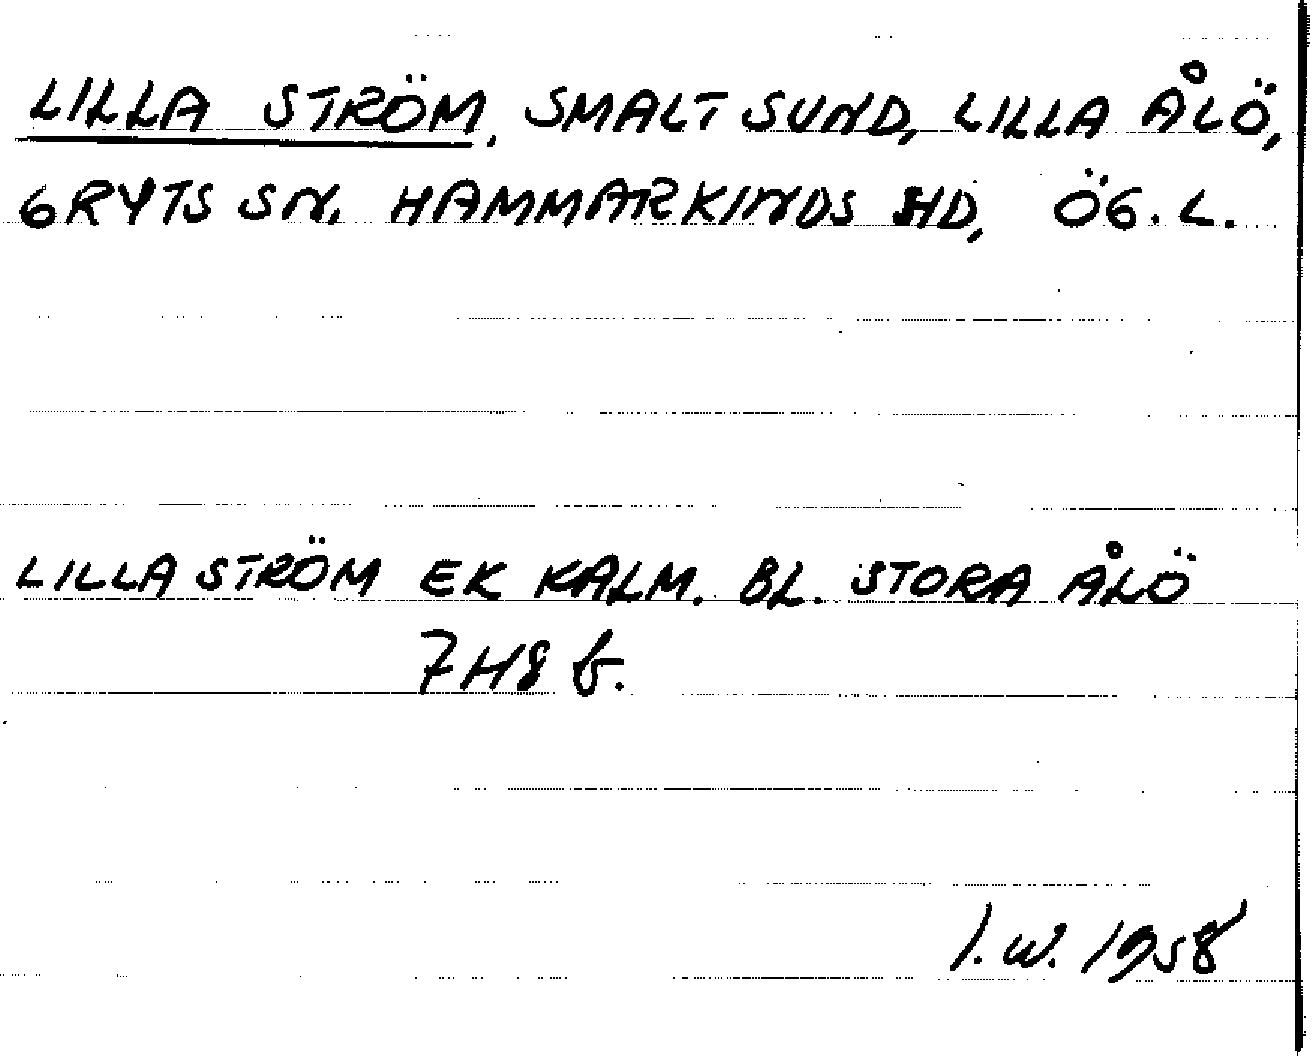 LILLA STRÖM, SMALT SUND, LILLA ÅLÖ,
GRYTS SN, HAMMARKINDS HD, ÖG. L.
LILLA STRÖM EK KALM. BL. STORA ÅLÖ
7H8 b.
I. W. 1958